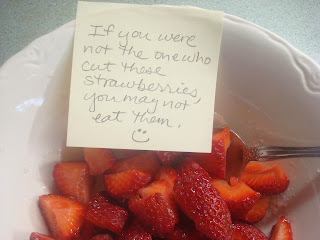 If you were
not the one who
cut these
strawberries,
you may not
eat them.